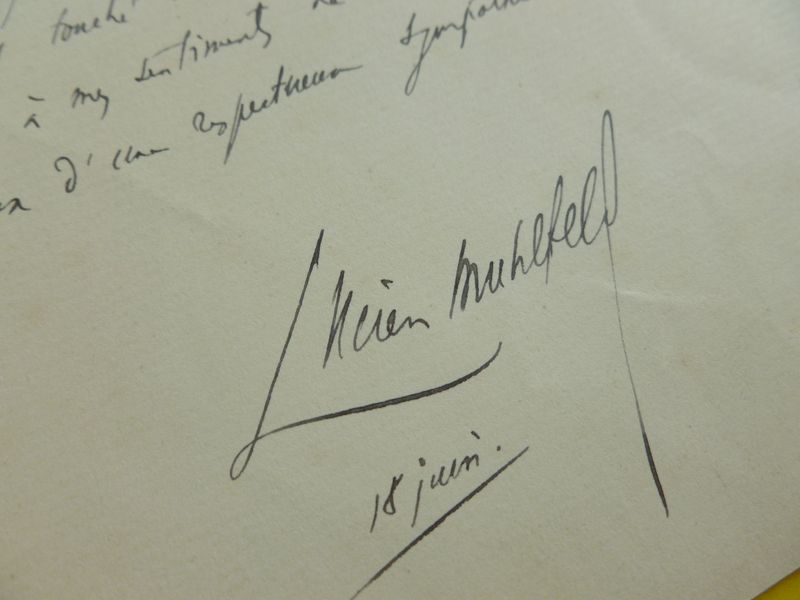 touché
à mes sentiments de
d'une respectueuse sympathie
Lucien Muhlfeld
18 juin.